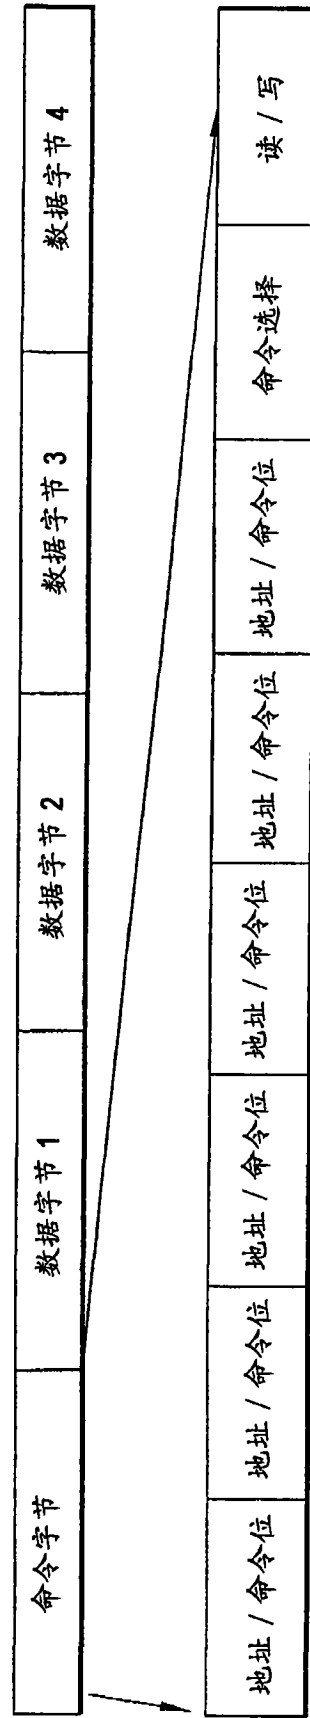 命令字节
数据字节 1
数据字节 2
数据字节 3
数据字节 4
地址 / 命令位
地址 / 命令位
地址 / 命令位
地址 / 命令位
地址 / 命令位
地址 / 命令位
命令选择
读 / 写